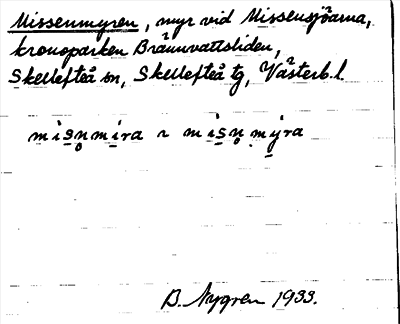 Missenmyren, myr vid Missensjöarna,
kronoparken Brännvattsliden,
Skellefteå sn, Skellefteå tg, Västerb. l.
mìsn̥mìra ~ mìsn̥mỳra
B. Nygren 1933.